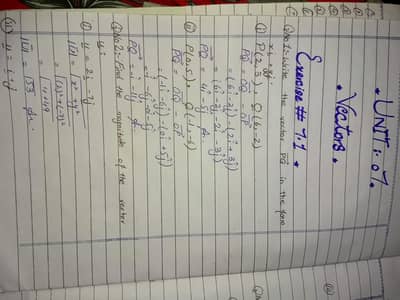 UNIT: 07.
Vectors.
Exercise # 7.1
Q No 1: Write the vector PQ in the form
xi + yj
① P(2,3), Q(6,-2)
PQ = OQ - OP
= (6i-2j) - (2i+3j)
= 6i-2j-2i-3j
PQ = 4i-5j
② P(0,5), Q(-1,-6)
PQ = OQ - OP
= (-i-6j) - (0i+5j)
= -i-6j-0i-5j
PQ = -i-11j
Q No 2: Find the magnitude of the vector
u:
① u = 2i-7j
|u| = √x²+y²
= √(2)²+(-7)²
= √4+49
|u| = √53
(ii) u = i+j